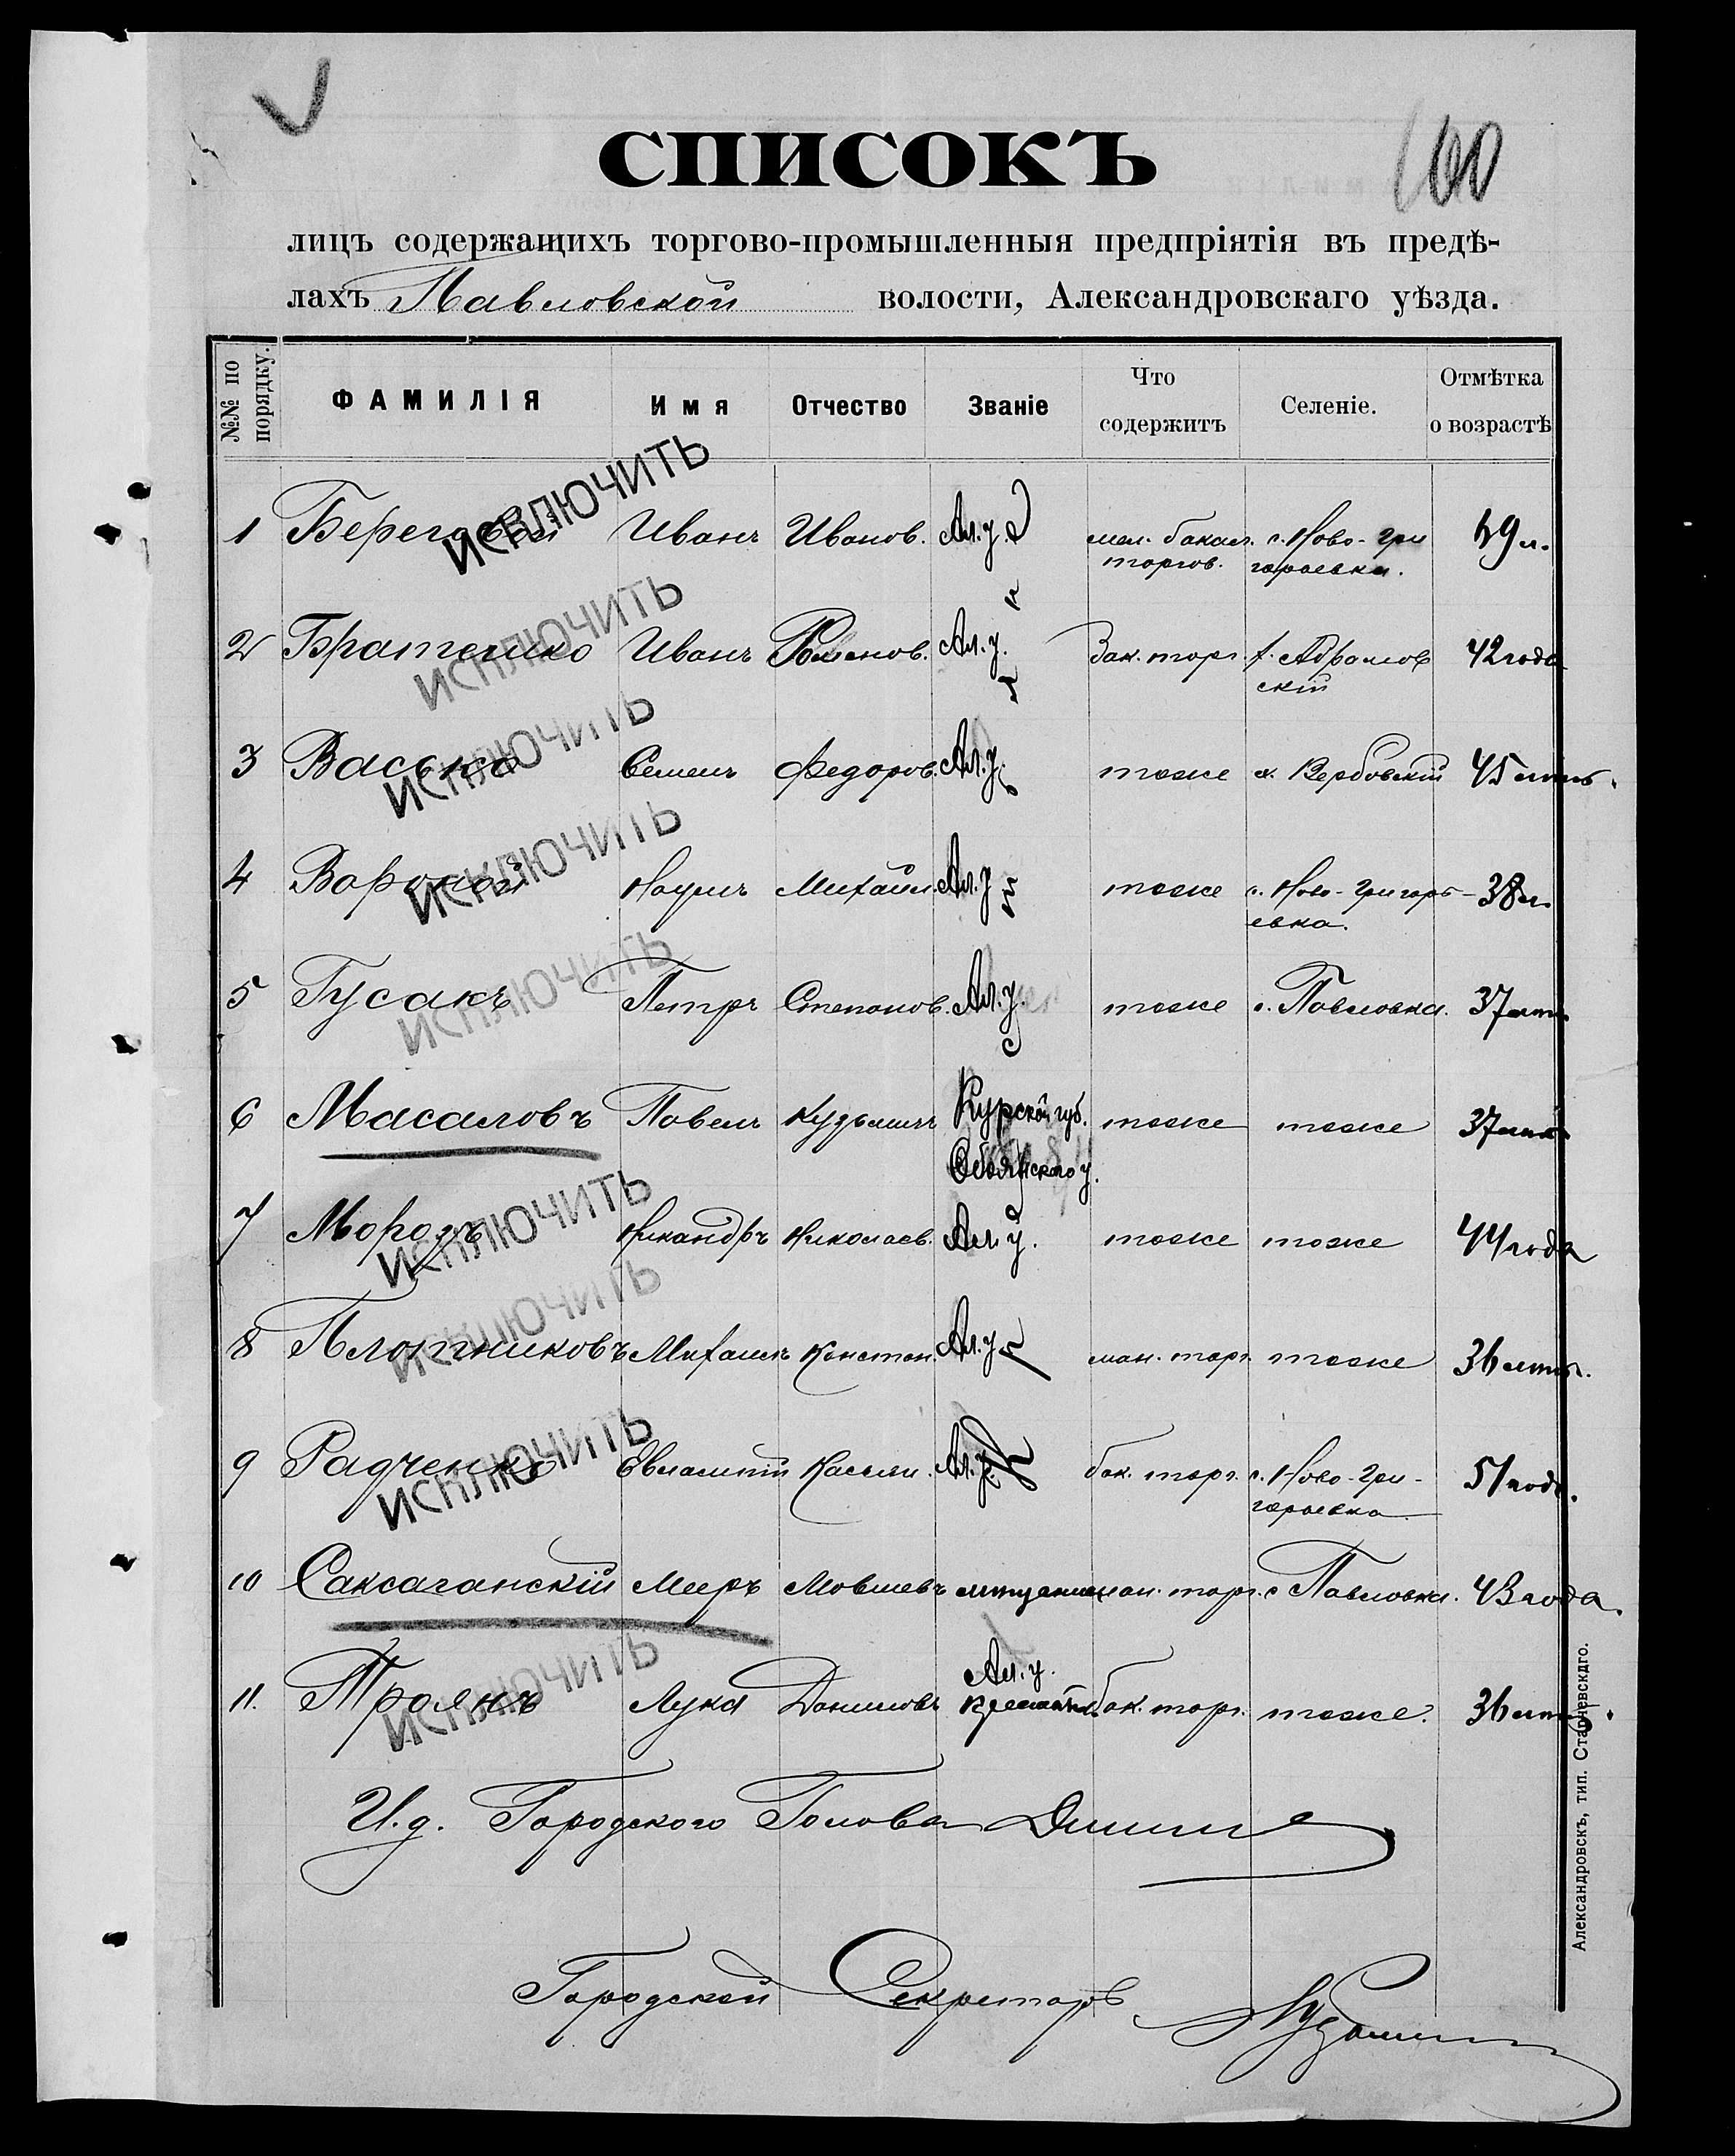 100
СПИСОКЪ
лицъ содержащихъ торгово-промышленныя предпріятія въ предѣ-
лахъ Павловской волости, Александровскаго уѣзда.
№№ по порядку. ФАМИЛІЯ Имя Отчество Званіе Что содержитъ Селеніе. Отмѣтка о возрастѣ
1 Береговой Иванъ Иванов. Ал. у. мел. бакал. с. Ново-Гри
торгов. горьевка.
ИСКЛЮЧИТЬ
2 Братешко Иванъ Романов. Ал. у. Бак. торг. х. Абрамов 42 года
скій
ИСКЛЮЧИТЬ
3 Васько Семенъ Федоров. Ал. у. тоже х. Вербовскій 45 лѣтъ.
ИСКЛЮЧИТЬ
4 Вороной Наумъ Михайл. Ал. у тоже с. Ново-Григорь- 38 л.
евка.
ИСКЛЮЧИТЬ
5 Гусакъ Петръ Степанов. Ал. у. тоже с. Павловка. 37 лѣт.
ИСКЛЮЧИТЬ
6 Масаловъ Павелъ Кузьмичъ Курской губ. тоже тоже 37 лѣт.
Обоянского у.
7 Морозъ Никандръ Николаев. Ал. у. тоже тоже 44 года
ИСКЛЮЧИТЬ
8 Плотниковъ Михаилъ Констан. Ал. у ман. торг. тоже 36 лѣтъ.
ИСКЛЮЧИТЬ
9 Радченко Евлампій Касьян. Ал. у. бак. торг. с. Ново-Гри- 51 годъ.
горьевка
ИСКЛЮЧИТЬ
10 Саксаганскій Мееръ Мовшевъ ман. торг. с Павловка. 43 года.
ИСКЛЮЧИТЬ
Ал. у.
11. Троянъ Лука Даниловъ бак. торг. тоже. 36 лѣтъ.
И.д. Городского Голова
Городской Секретарь
Александровскъ, тип. Старчевскаго.